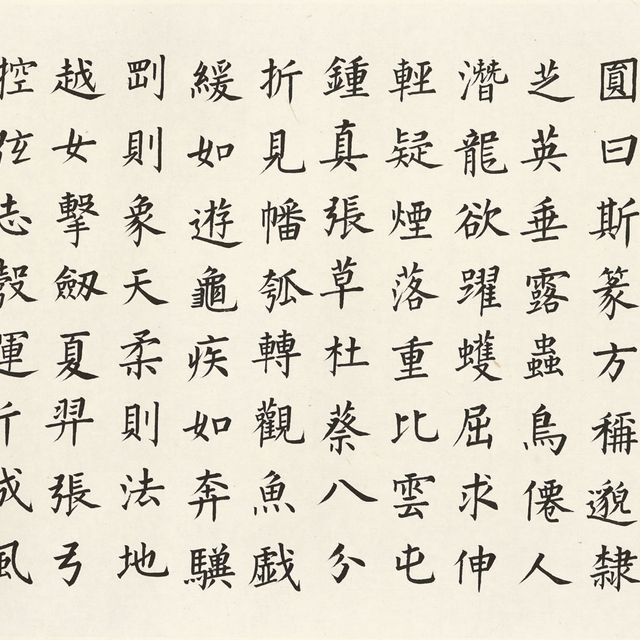 圓曰斯篆方稱邈隸
芝英垂露蟲鳥僊人
潛龍欲躍蠖屈求伸
輕疑煙落重比雲屯
鍾真張草杜蔡八分
折見幡瓠轉觀魚戱
緩如遊龜疾如奔驥
剛則象天柔則法地
越女擊劒夏羿張弓
控弦志彀運斤成風